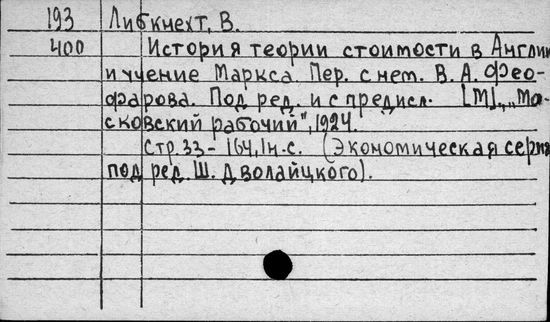 193 Либкнехт, В.
400 История теории стоимости в Англии
и учение Маркса. Пер. с нем. В. А. Фео-
фарова. Под ред. и с предисл. [М], „Мо-
сковский рабочий", 1924.
стр. 33 - 164, 1 н. с. (Экономическая серия
под ред. Ш. Дволайцкого).